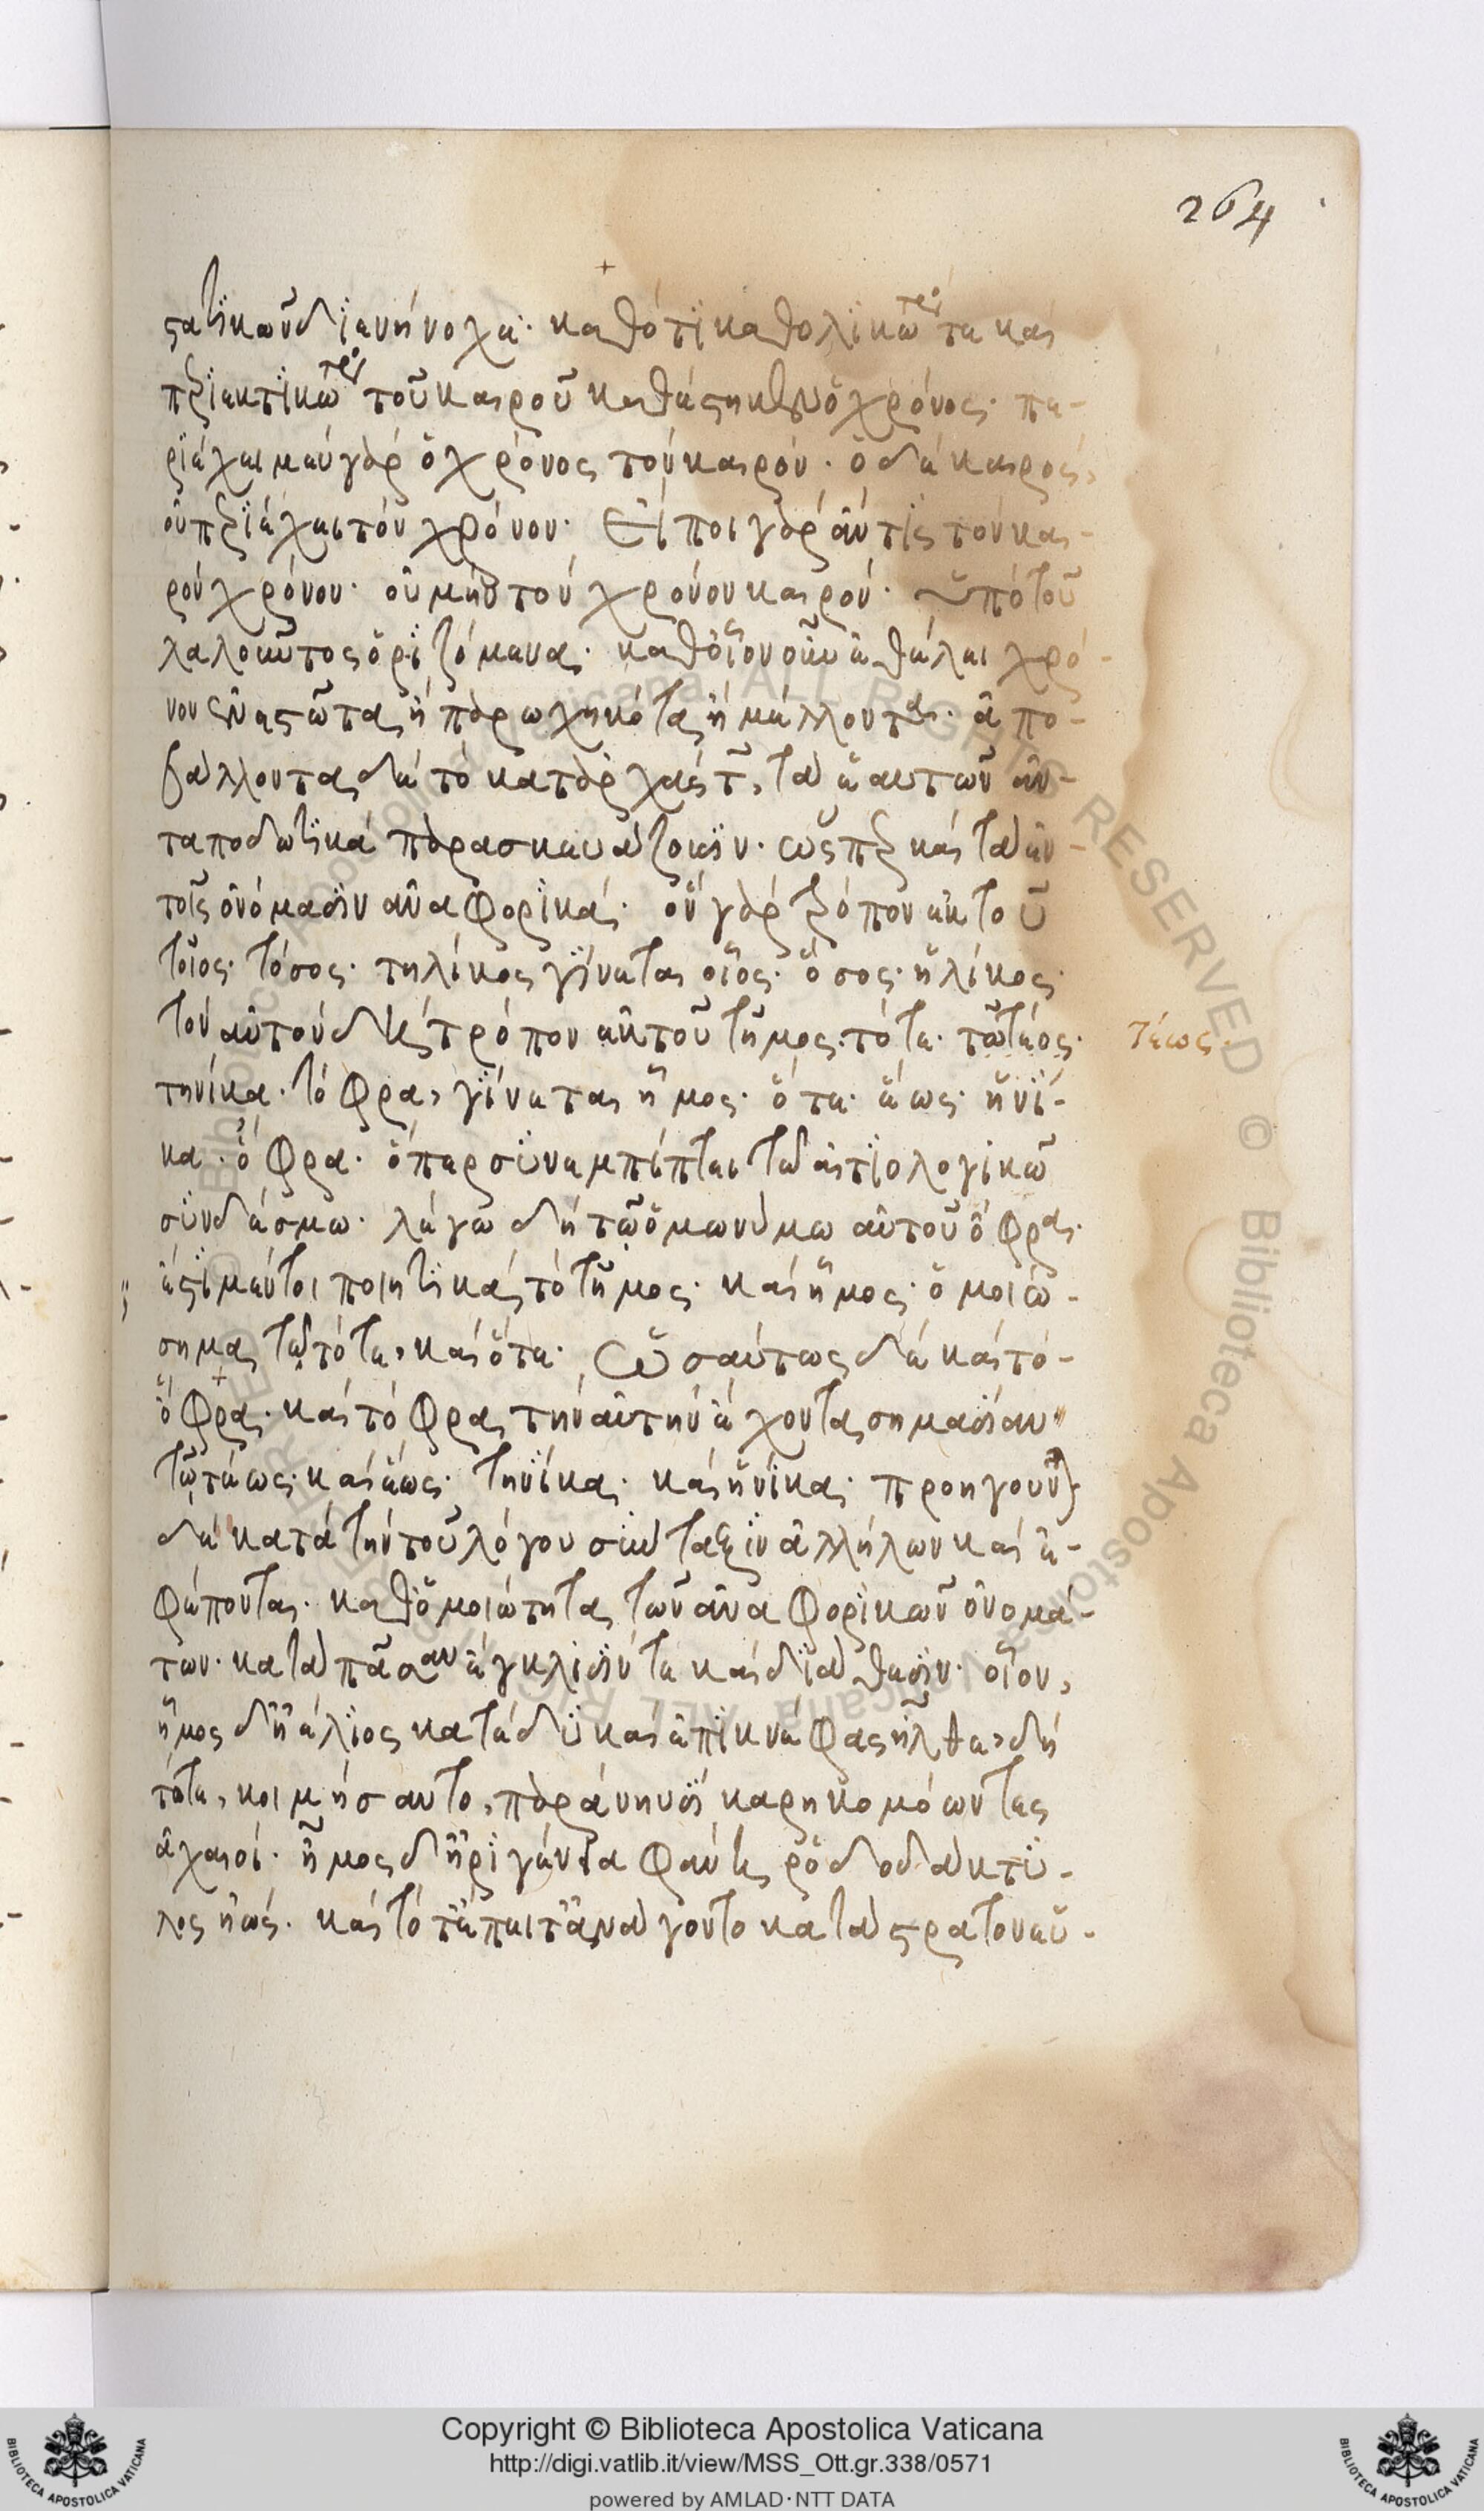 264
στατικῶν διενήνοχε· καθότι καθολικώτερόν τε καὶ
περιεκτικώτερον τοῦ καιροῦ καθέστηκεν ὁ χρόνος· πε-
ριέχει μὲν γὰρ ὁ χρόνος τὸν καιρόν· ὁ δὲ καιρὸς,
οὐ περιέχει τὸν χρόνον· Εἴποι γὰρ ἄν τις τὸν και-
ρὸν χρόνον· οὐ μὴν τὸν χρόνον καιρόν· ὑπὸ τοῦ
λαλοῦντος ὁριζόμενα· καθ' οἷον οὖν ἐθέλει χρό-
νον ἐνεστῶτα ἢ παρωχηκότα ἢ μέλλοντα· ἀπο-
βάλλοντα δὲ τὸ κατ' ἀρχὰς τ, τὰ ἑαυτῶν ἀν-
ταποδοτικὰ παρασκευάζουσιν· ὥσπερ καὶ τὰ ἐν
τοῖς ὀνόμασιν ἀναφορικά· ὃν γὰρ τρόπον ἐκ τοῦ
τοῖος· τόσος· τηλίκος γίνεται οἷος· ὅσος· ἡλίκος·
τὸν αὐτὸν δὴ τρόπον ἐκ τοῦ τῆμος· τότε· τῶ τέος· τέως·
τηνίκα· τόφρα, γίνεται ἦμος· ὅτε· ἕως· ἡνί-
κα· ὄφρα· ὅπερ συνεμπίπτει τῶ αἰτιολογικῶ
συνδέσμω· λέγω δὴ τῶ ὁμωνύμω αὐτοῦ ὄφρα·
ἔστι μέντοι ποιητικὰ τὸ τῆμος· καὶ ἦμος· ὁμοιο-
σήμα τῶ τότε, καὶ ὅτε· Ὡσαύτως δὲ καὶ τὸ
ὄφρα· καὶ τόφρα τὴν αὐτὴν ἔχοντα σημασίαν
τῶ τέως· καὶ ἕως· τηνίκα· καὶ ἡνίκα· προηγοῦνται
δὲ κατὰ τὴν τοῦ λόγου σύνταξιν ἀλλήλων καὶ ἐ-
φέπονται· καθ' ὁμοιότητα τῶν ἀναφορικῶν ὀνομά-
των· κατὰ πᾶσαν ἔγκλισίν τε καὶ διάθεσιν· οἷον,
ἦμος δ' ἠέλιος κατέδυ καὶ ἐπὶ κνέφας ἦλθε, δὴ
τότε, κοιμήσαντο, παρὰ νηυσὶ καρηκομόωντες
ἀχαιοί· ἦμος δ' ἠριγένεια φάνη ῥοδοδάκτυ-
λος ἠώς· καὶ τότ' ἔπειτ' ἀνάγοντο κατὰ στρατὸν εὐ-
Copyright © Biblioteca Apostolica Vaticana
http://digi.vatlib.it/view/MSS_Ott.gr.338/0571
powered by AMLAD·NTT DATA